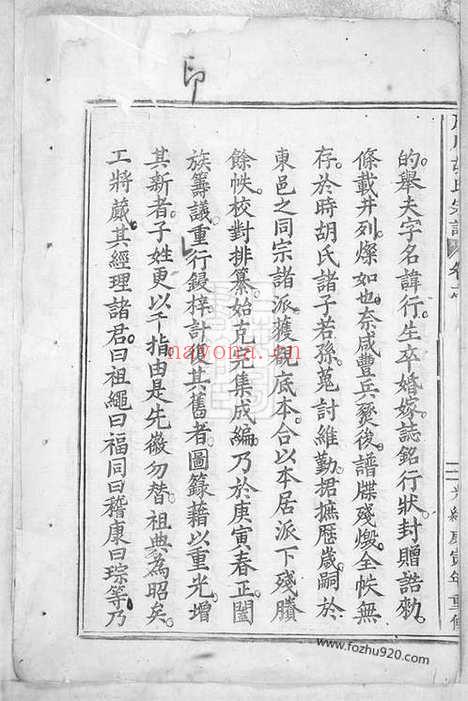 印
胡氏宗譜
光緒庚寅年重修
的舉夫字名諱行生卒婚嫁誌銘行狀封贈誥勅
條載井列燦如也奈咸豐兵燹後譜牒殘燬全帙無
存於時胡氏諸子若孫蒐討維勤捃摭歷歲嗣於
東邑之同宗諸派獲覩底本合以本居派下殘賸
餘帙校對排纂始克完集成編乃於庚寅春正闔
族籌議重行鋟梓計復其舊者圖籙藉以重光增
其新者子姓更以千指由是先徽勿替祖典為昭矣
工將蕆其經理諸君曰祖繩曰福同曰稽康曰琮等乃
nayona.cn
www.fozhu920.com